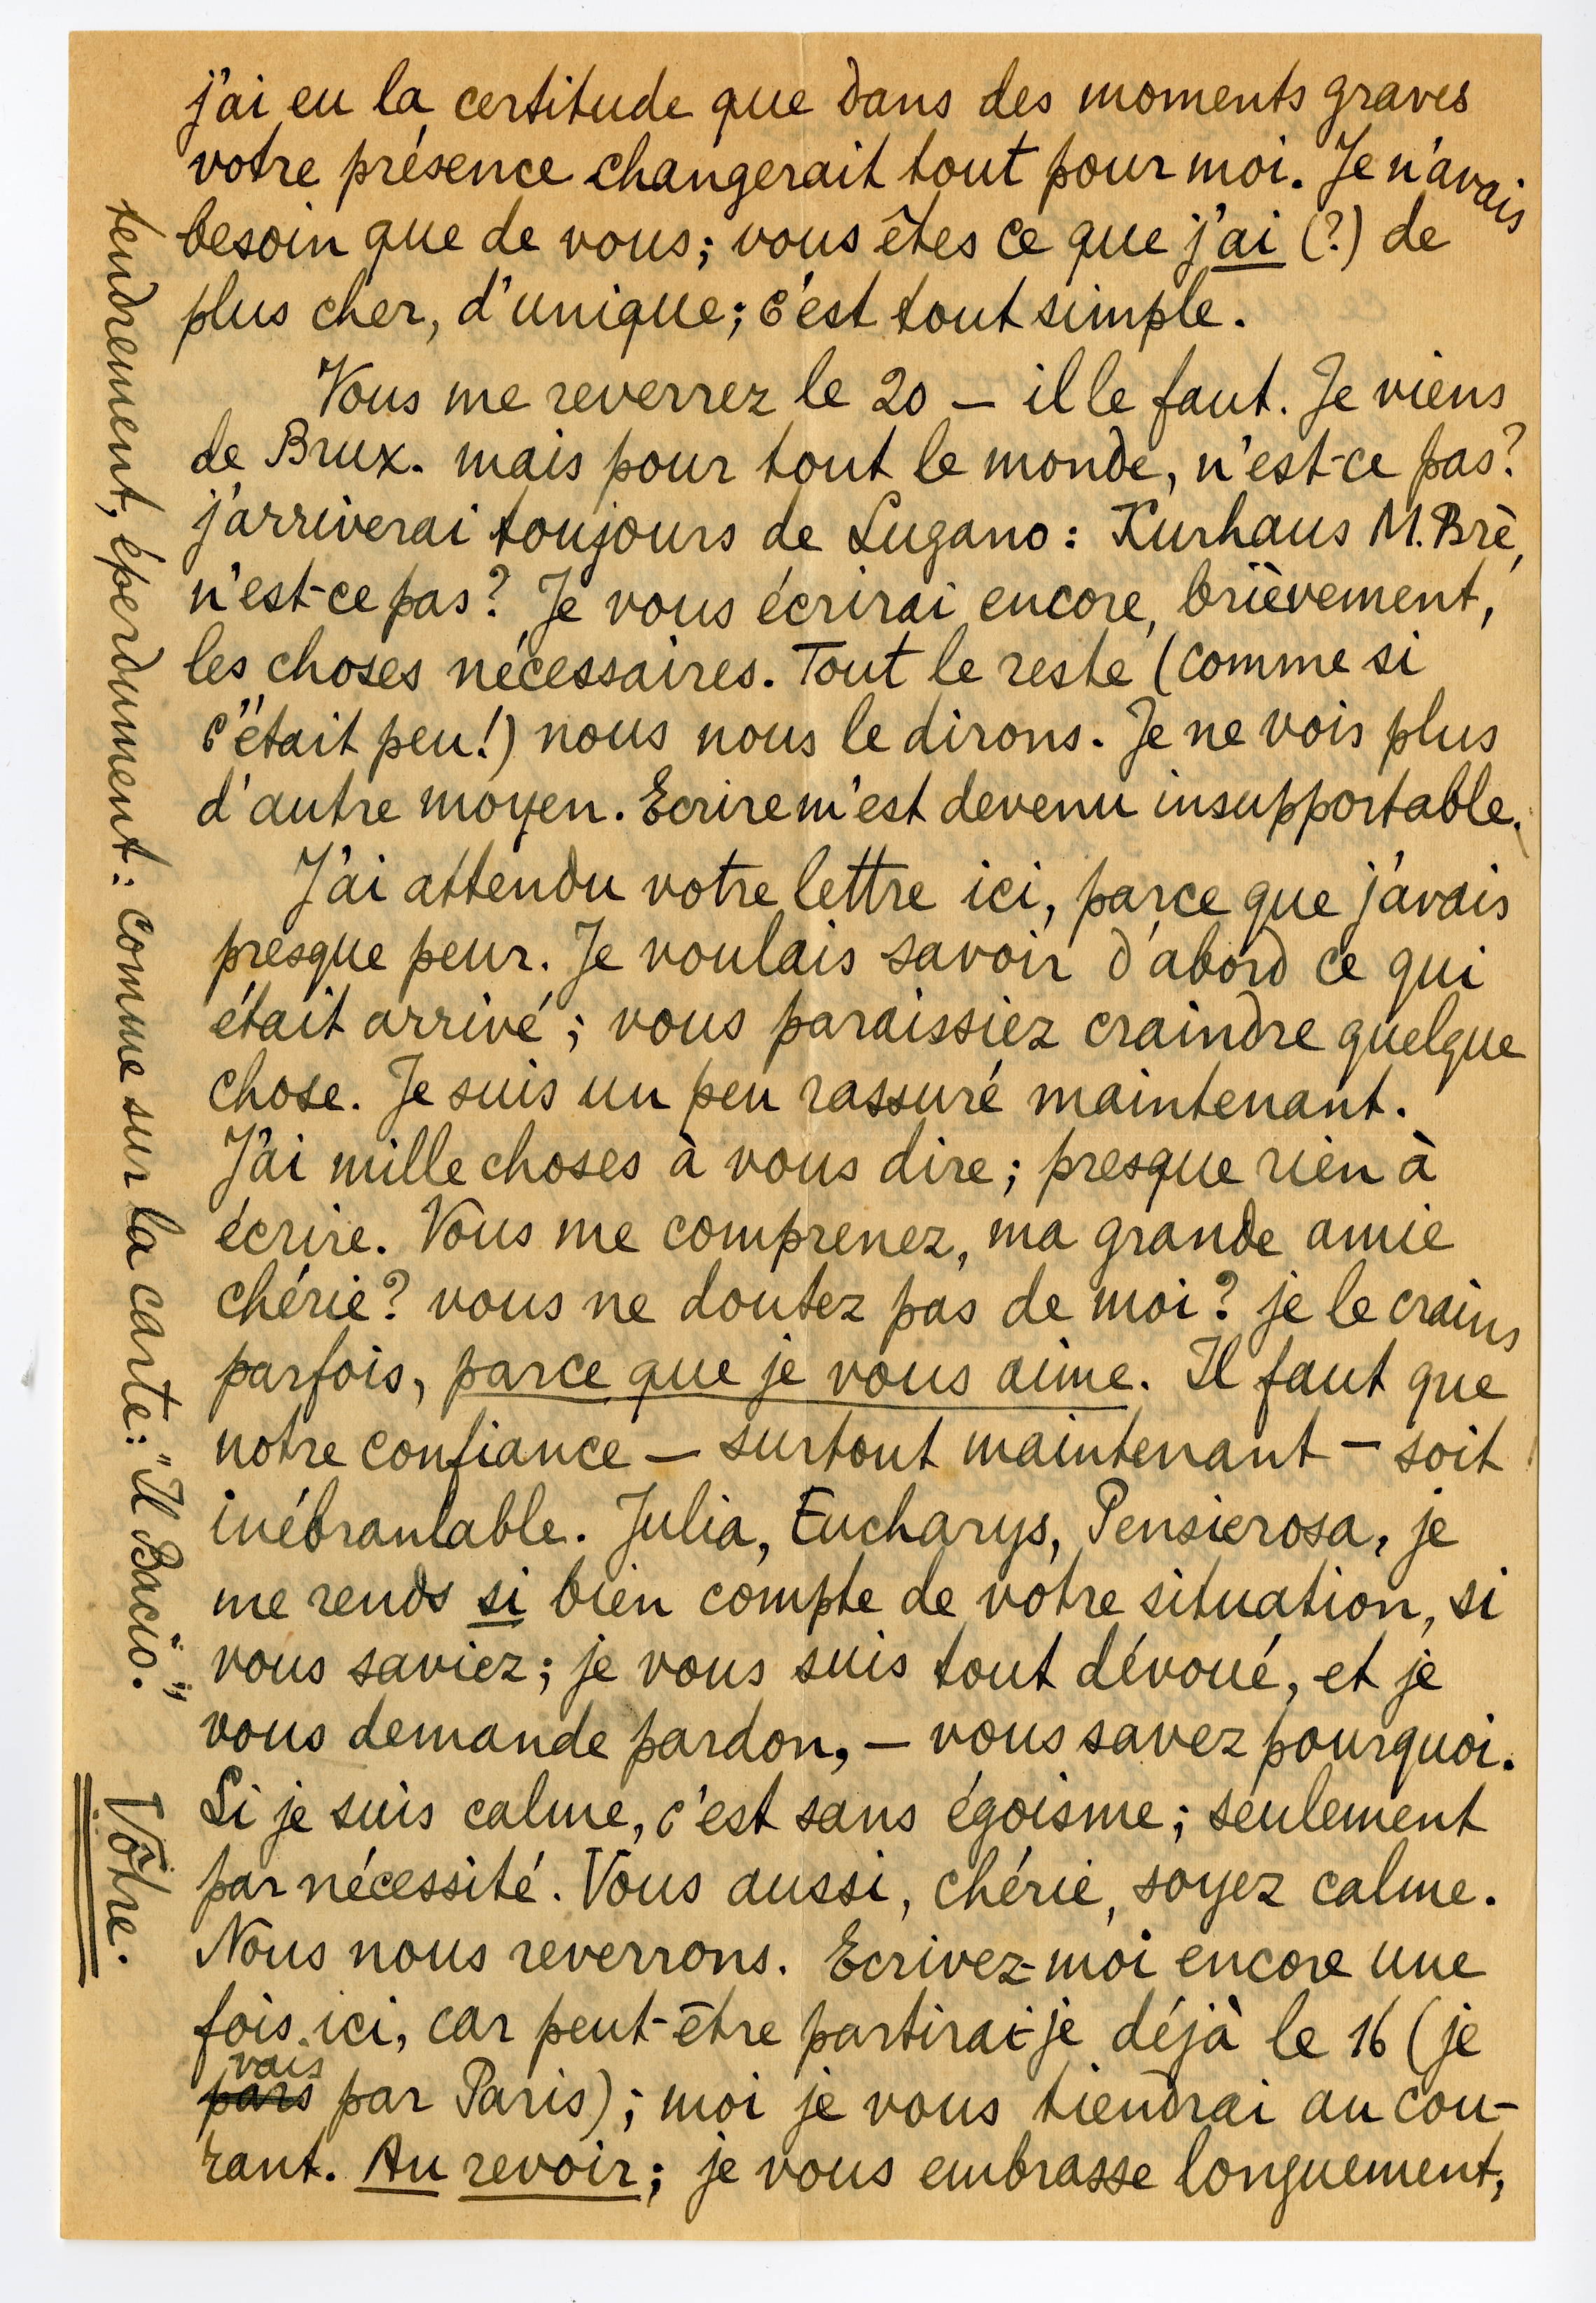 j'ai eu la certitude que dans des moments graves
votre présence changerait tout pour moi. Je n'avais
besoin que de vous; vous êtes ce que j'ai (?) de
plus cher, d'unique; c'est tout simple.
Vous me reverrez le 20 — il le faut. Je viens
de Brux. mais pour tout le monde, n'est-ce pas?
j'arriverai toujours de Lugano: Kurhaus M. Brè,
n'est-ce pas? Je vous écrirai encore, brièvement,
les choses nécessaires. Tout le reste (comme si
c'était peu!) nous nous le dirons. Je ne vois plus
d'autre moyen. Ecrire m'est devenu insupportable.
J'ai attendu votre lettre ici, parce que j'avais
presque peur. Je voulais savoir d'abord ce qui
était arrivé; vous paraissiez craindre quelque
chose. Je suis un peu rassuré maintenant.
J'ai mille choses à vous dire; presque rien à
écrire. Vous me comprenez, ma grande amie
chérie? vous ne doutez pas de moi? je le crains
parfois, parce que je vous aime. Il faut que
notre confiance — surtout maintenant — soit
inébranlable. Julia, Eucharys, Pensierosa, je
me rends si bien compte de votre situation, si
vous saviez; je vous suis tout dévoué, et je
vous demande pardon, — vous savez pourquoi.
Si je suis calme, c'est sans égoisme; seulement
par nécessité. Vous aussi, chérie, soyez calme.
Nous nous reverrons. Ecrivez-moi encore une
fois ici, car peut-être partirai-je déjà le 16 (je
vais
pars par Paris); moi je vous tiendrai au cou-
rant. Au revoir; je vous embrasse longuement,
tendrement, éperdument: comme sur la carte: "Il Bacio".
Vôtre.